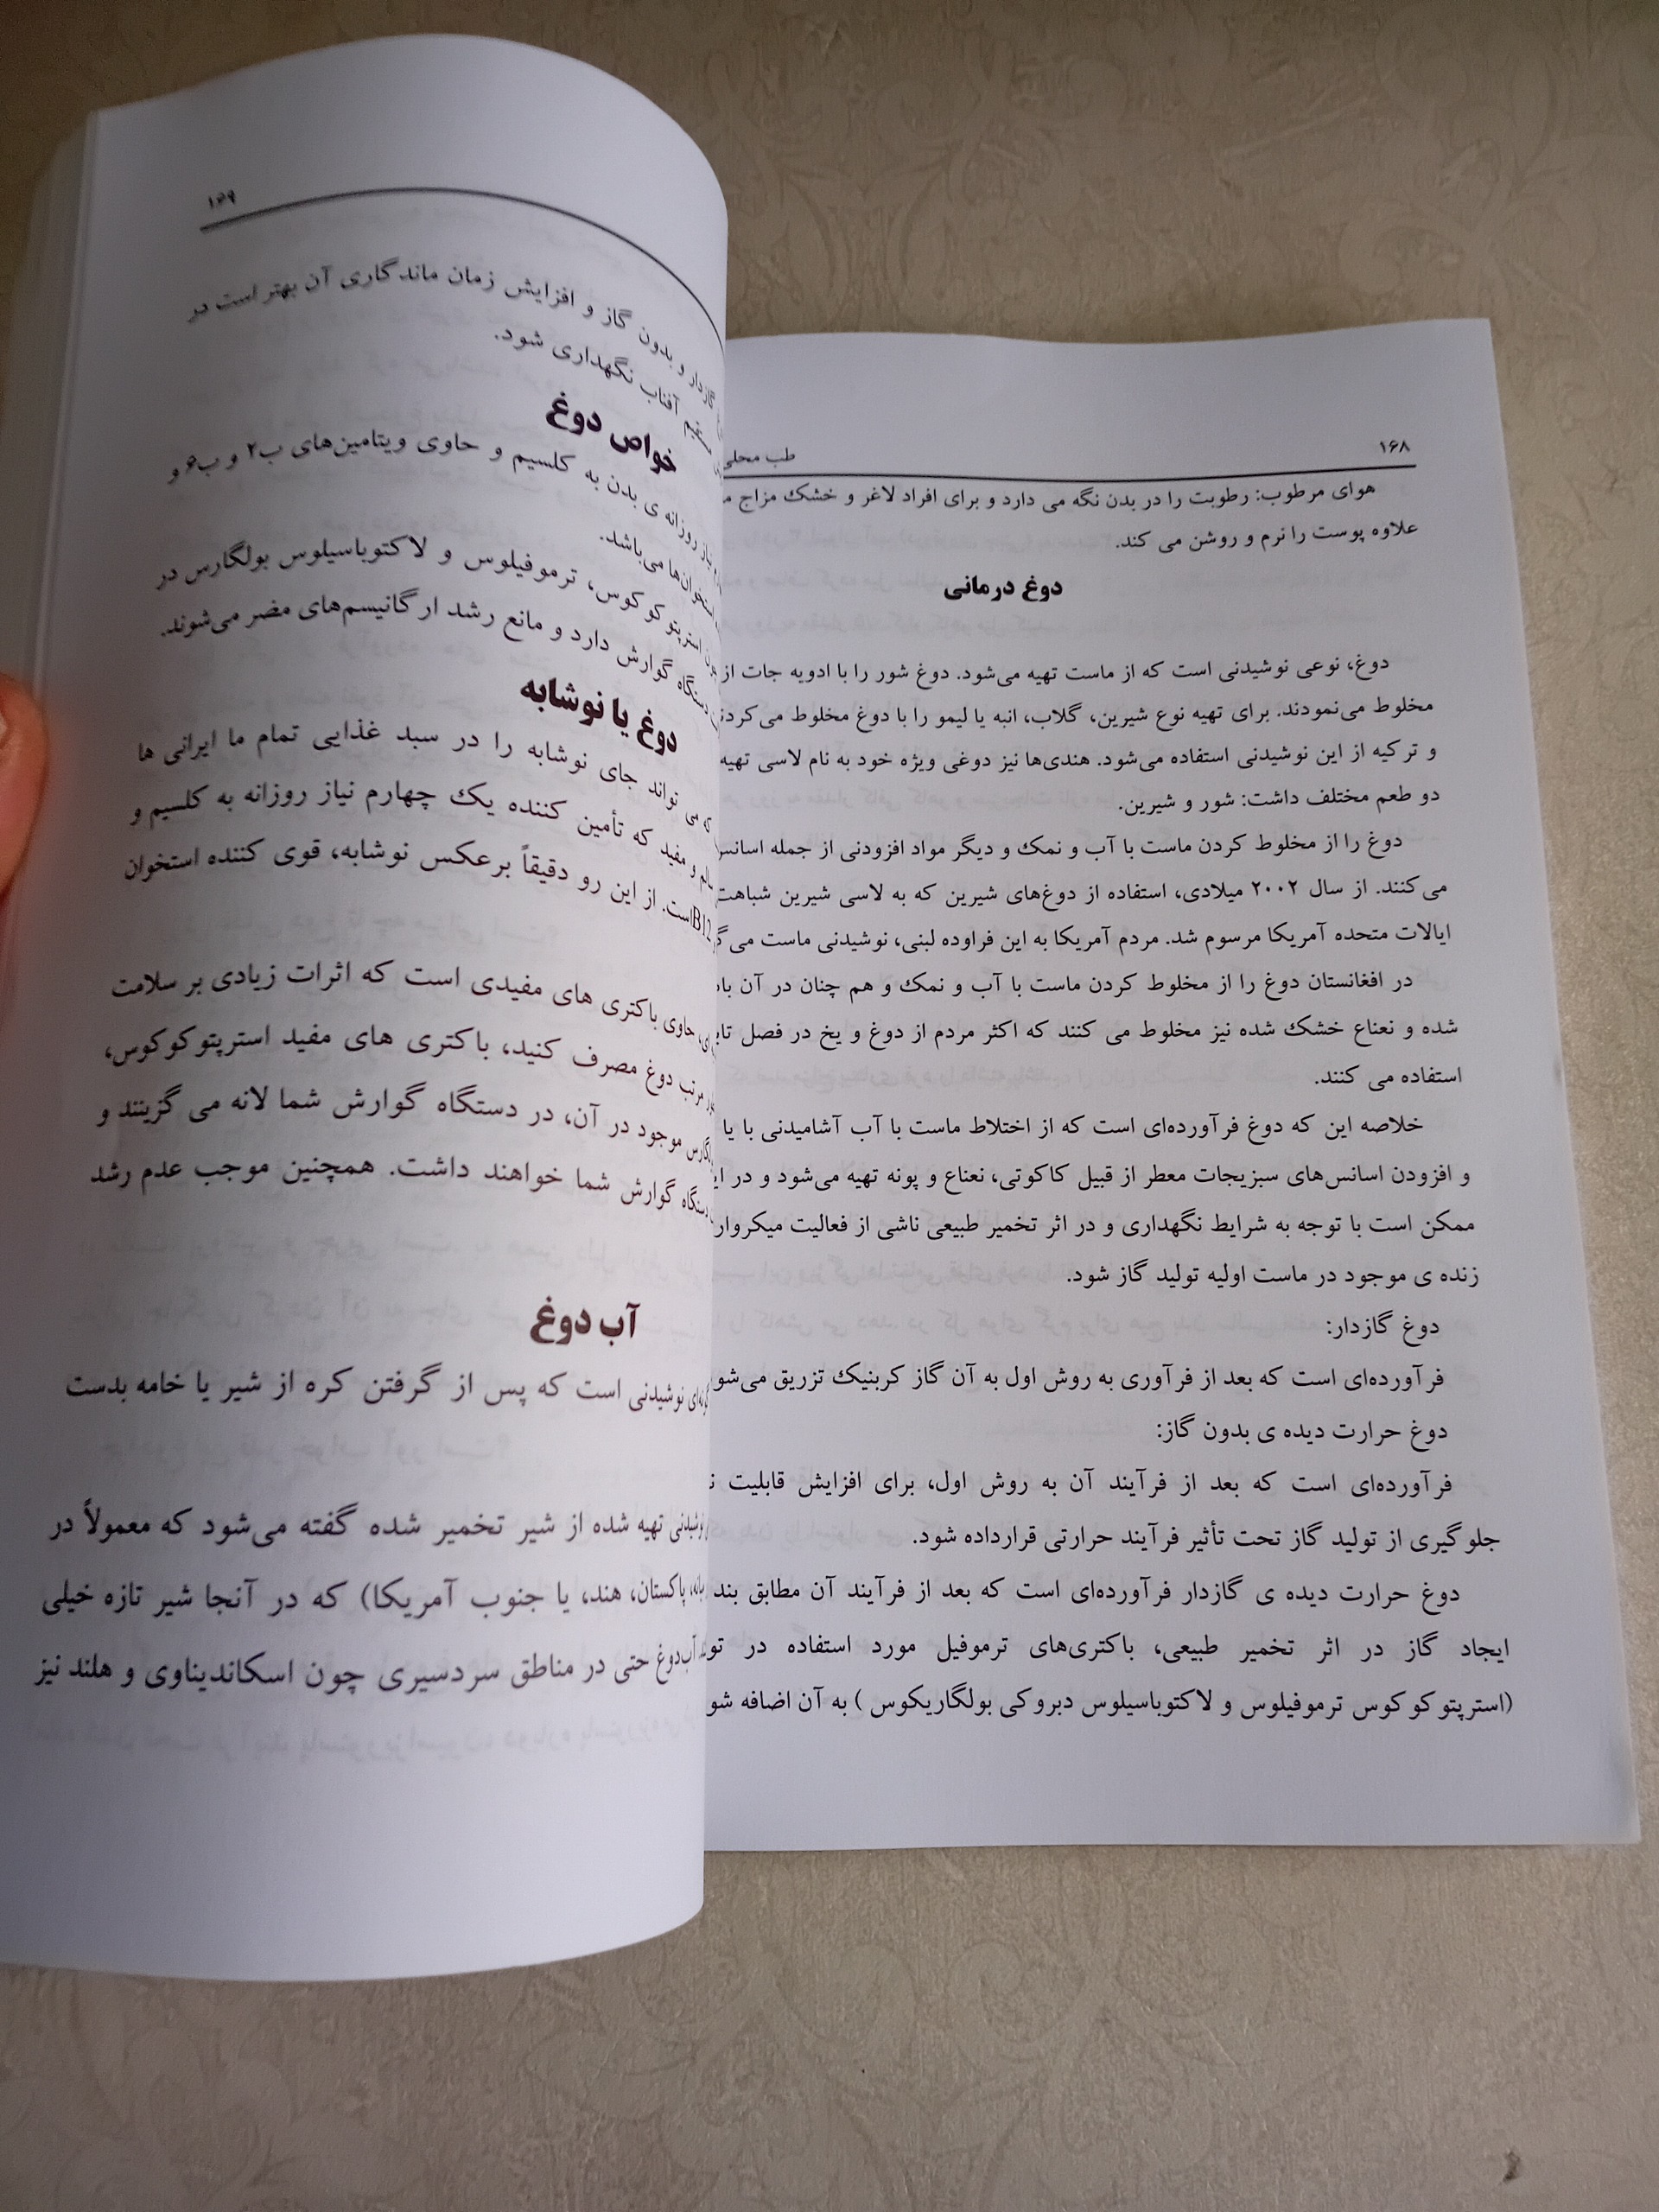 ۱۶۸
طب محلی
هوای مرطوب: رطوبت را در بدن نگه می دارد و برای افراد لاغر و خشک مزاج
علاوه پوست را نرم و روشن می کند.
دوغ درمانی
دوغ، نوعی نوشیدنی است که از ماست تهیه می‌شود. دوغ شور را با ادویه جات از
مخلوط می‌نمودند. برای تهیه نوع شیرین، گلاب، انبه یا لیمو را با دوغ مخلوط می‌کردند
و ترکیه از این نوشیدنی استفاده می‌شود. هندی‌ها نیز دوغی ویژه خود به نام لاسی تهیه
دو طعم مختلف داشت: شور و شیرین.
دوغ را از مخلوط کردن ماست با آب و نمک و دیگر مواد افزودنی از جمله اسانس
می‌کنند. از سال ۲۰۰۲ میلادی، استفاده از دوغ‌های شیرین که به لاسی شیرین شباهت
ایالات متحده آمریکا مرسوم شد. مردم آمریکا به این فراوده لبنی، نوشیدنی ماست
در افغانستان دوغ را از مخلوط کردن ماست با آب و نمک و هم چنان در آن
شده و نعناع خشک شده نیز مخلوط می کنند که اکثر مردم از دوغ و یخ در فصل
استفاده می کنند.
خلاصه این که دوغ فرآورده‌ای است که از اختلاط ماست با آب آشامیدنی با یا
و افزودن اسانس‌های سبزیجات معطر از قبیل کاکوتی، نعناع و پونه تهیه می‌شود و در
ممکن است با توجه به شرایط نگهداری و در اثر تخمیر طبیعی ناشی از فعالیت
زنده ی موجود در ماست اولیه تولید گاز شود.
دوغ گازدار:
فرآورده‌ای است که بعد از فرآوری به روش اول به آن گاز کربنیک تزریق
دوغ حرارت دیده ی بدون گاز:
فرآورده‌ای است که بعد از فرآیند آن به روش اول، برای افزایش قابلیت
جلوگیری از تولید گاز تحت تأثیر فرآیند حرارتی قرارداده شود.
دوغ حرارت دیده ی گازدار فرآورده‌ای است که بعد از فرآیند آن مطابق بند
ایجاد گاز در اثر تخمیر طبیعی، باکتری‌های ترموفیل مورد استفاده در
(استرپتوکوکوس ترموفیلوس و لاکتوباسیلوس دبروکی بولگاریکوس ) به آن اضافه
۱۶۹
گازدار و بدون گاز و افزایش زمان ماندگاری آن بهتر است در
آفتاب نگهداری شود.
خواص دوغ
نیاز روزانه ی بدن به کلسیم و حاوی ویتامین‌های ب۲ و ب۶ و
استخوان‌ها می‌باشد.
استرپتوکوکوس، ترموفیلوس و لاکتوباسیلوس بولگارس در
دستگاه گوارش دارد و مانع رشد ارگانیسم‌های مضر می‌شوند.
دوغ یا نوشابه
که می تواند جای نوشابه را در سبد غذایی تمام ما ایرانی ها
و مفید که تأمین کننده یک چهارم نیاز روزانه به کلسیم و
B12است. از این رو دقیقاً برعکس نوشابه، قوی کننده استخوان
حاوی باکتری های مفیدی است که اثرات زیادی بر سلامت
مرتب دوغ مصرف کنید، باکتری های مفید استرپتوکوکوس،
موجود در آن، در دستگاه گوارش شما لانه می گزینند و
دستگاه گوارش شما خواهند داشت. همچنین موجب عدم رشد
آب دوغ
نوشیدنی است که پس از گرفتن کره از شیر یا خامه بدست
نوشیدنی تهیه شده از شیر تخمیر شده گفته می‌شود که معمولاً در
پاکستان، هند، یا جنوب آمریکا) که در آنجا شیر تازه خیلی
آب‌دوغ حتی در مناطق سردسیری چون اسکاندیناوی و هلند نیز